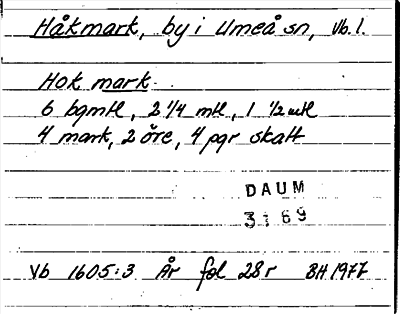 Håkmark, by i Umeå sn, Vb. l.
Hok mark
6 bgmtl, 2 1/4 mtl, 1 1/2 mtl
4 mark, 2 öre, 4 pgr skatt
DAUM
3169
Vb 1605:3 År fol 28r BH 1977